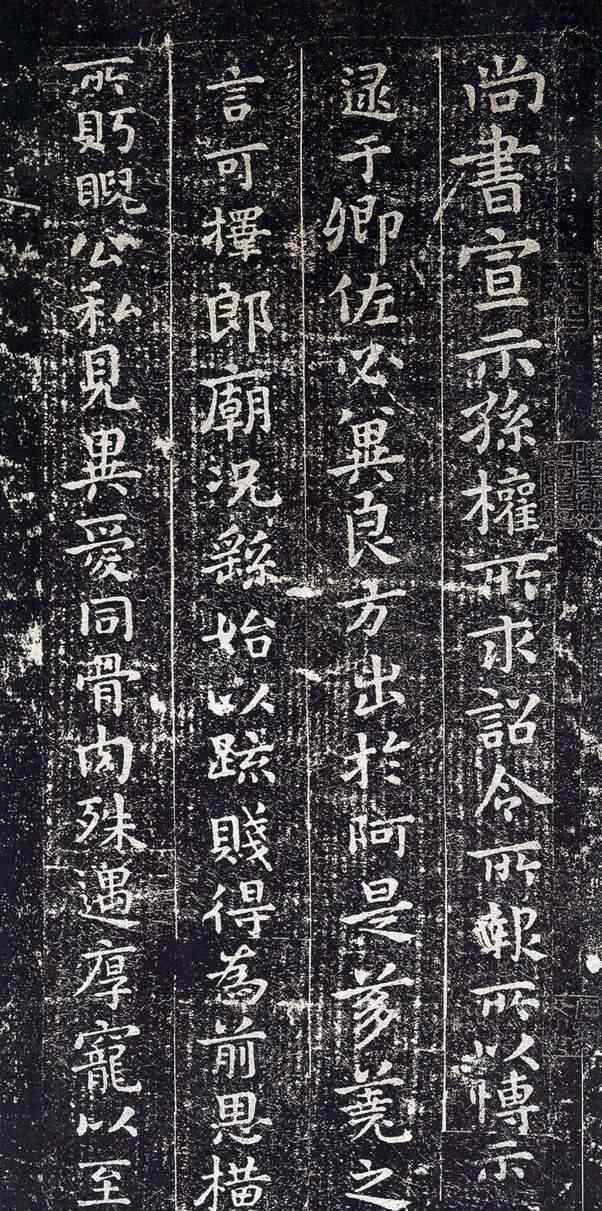 尚書宣示孫權所求詔令所報所以博示
逯于卿佐必兾良方出於阿是芻蕘之
言可擇郎廟況繇始以疏賤得為前恩橫
所盻睨公私見異愛同骨肉殊遇厚寵以至